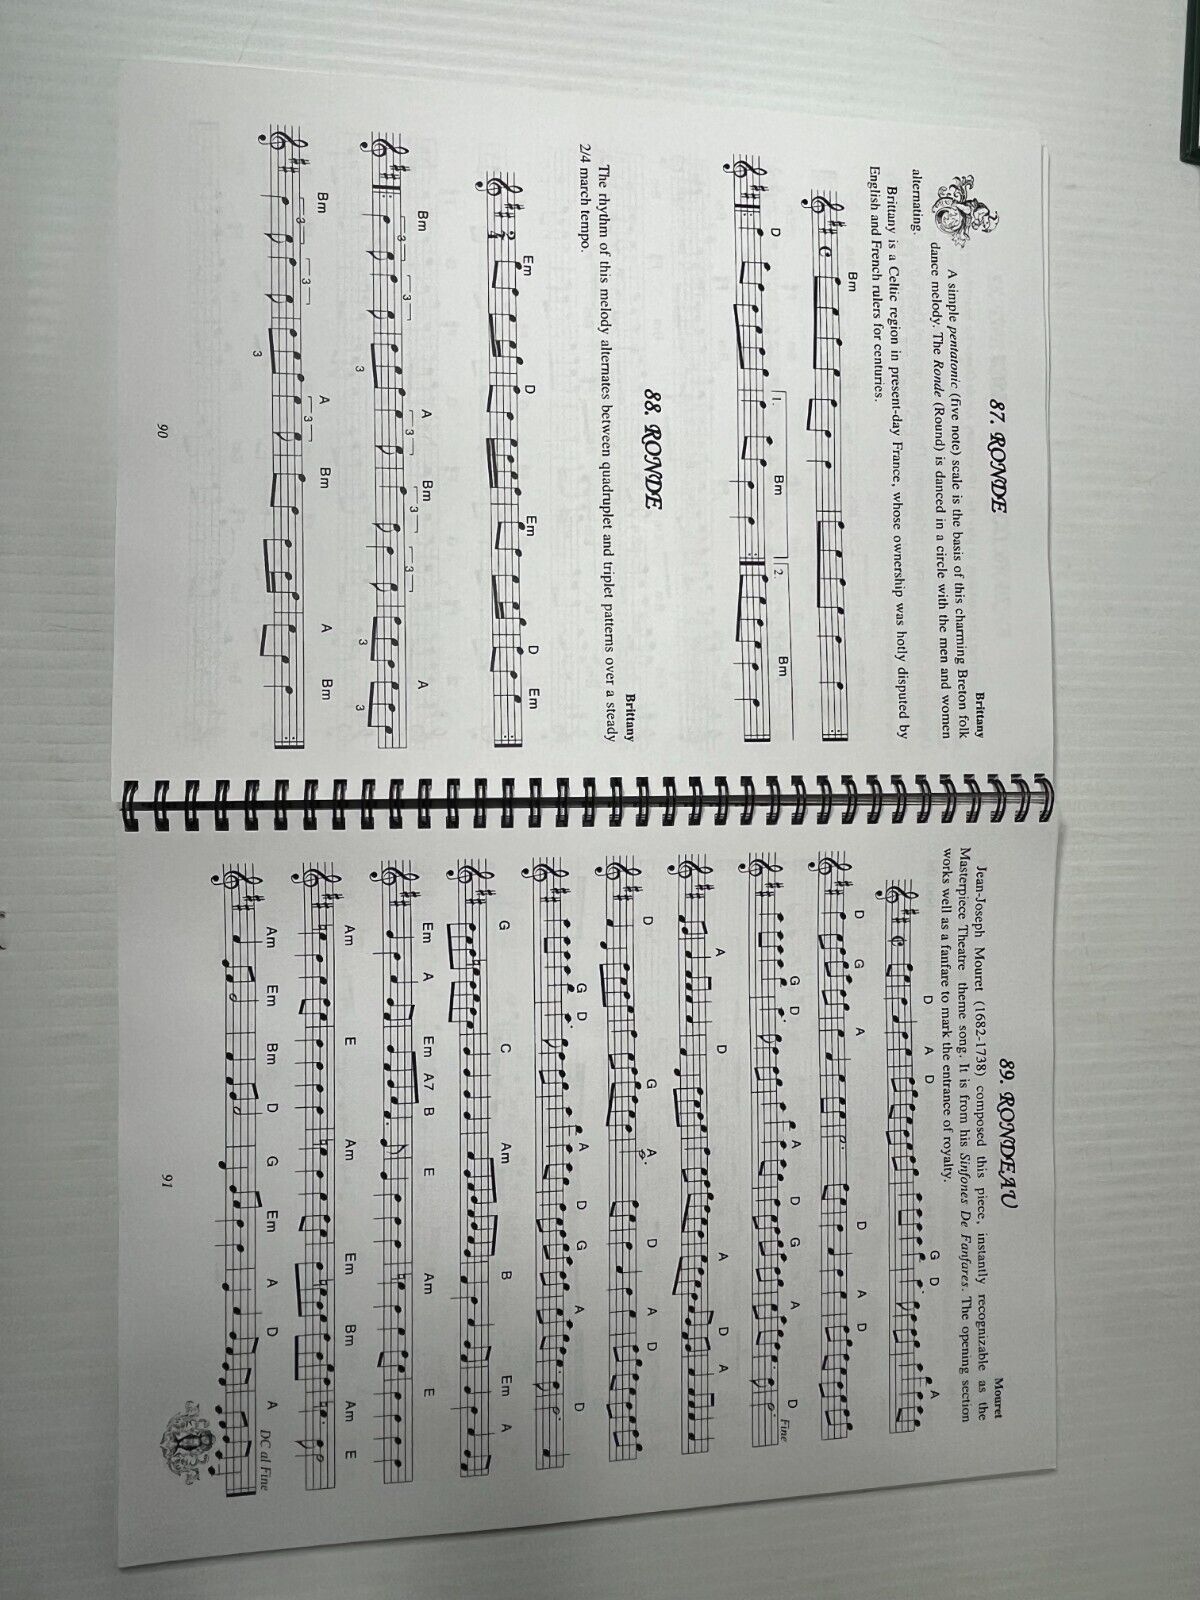 87. RONDE
Brittany
A simple pentatomic (five note) scale is the basis of this charming Breton folk
dance melody. The Ronde (Round) is danced in a circle with the men and women
alternating.
Brittany is a Celtic region in present-day France, whose ownership was hotly disputed by
English and French rulers for centuries.
Bm
D 1. Bm 2. Bm
88. RONDE
Brittany
The rhythm of this melody alternates between quadruplet and triplet patterns over a steady
2/4 march tempo.
Em D Em D Em
2
4
Bm A Bm A
3 3 3 3 3 3 3 3
Bm A Bm A Bm
3 3 3 3
90
89. RONDEAU
Mouret
Jean-Joseph Mouret (1682-1738) composed this piece, instantly recognizable as the
Masterpiece Theatre theme song. It is from his Sinfones De Fanfares. The opening section
works well as a fanfare to mark the entrance of royalty.
D A D G D A
D G A D A D
G D A D G A D Fine
A D A D A
D G A D A D
G D A D G A D
G C Am B Em A
Em A Em A7 B E Am E
Am E Am Em Bm Am E
Am Em Bm D G Em A D A DC al Fine
91